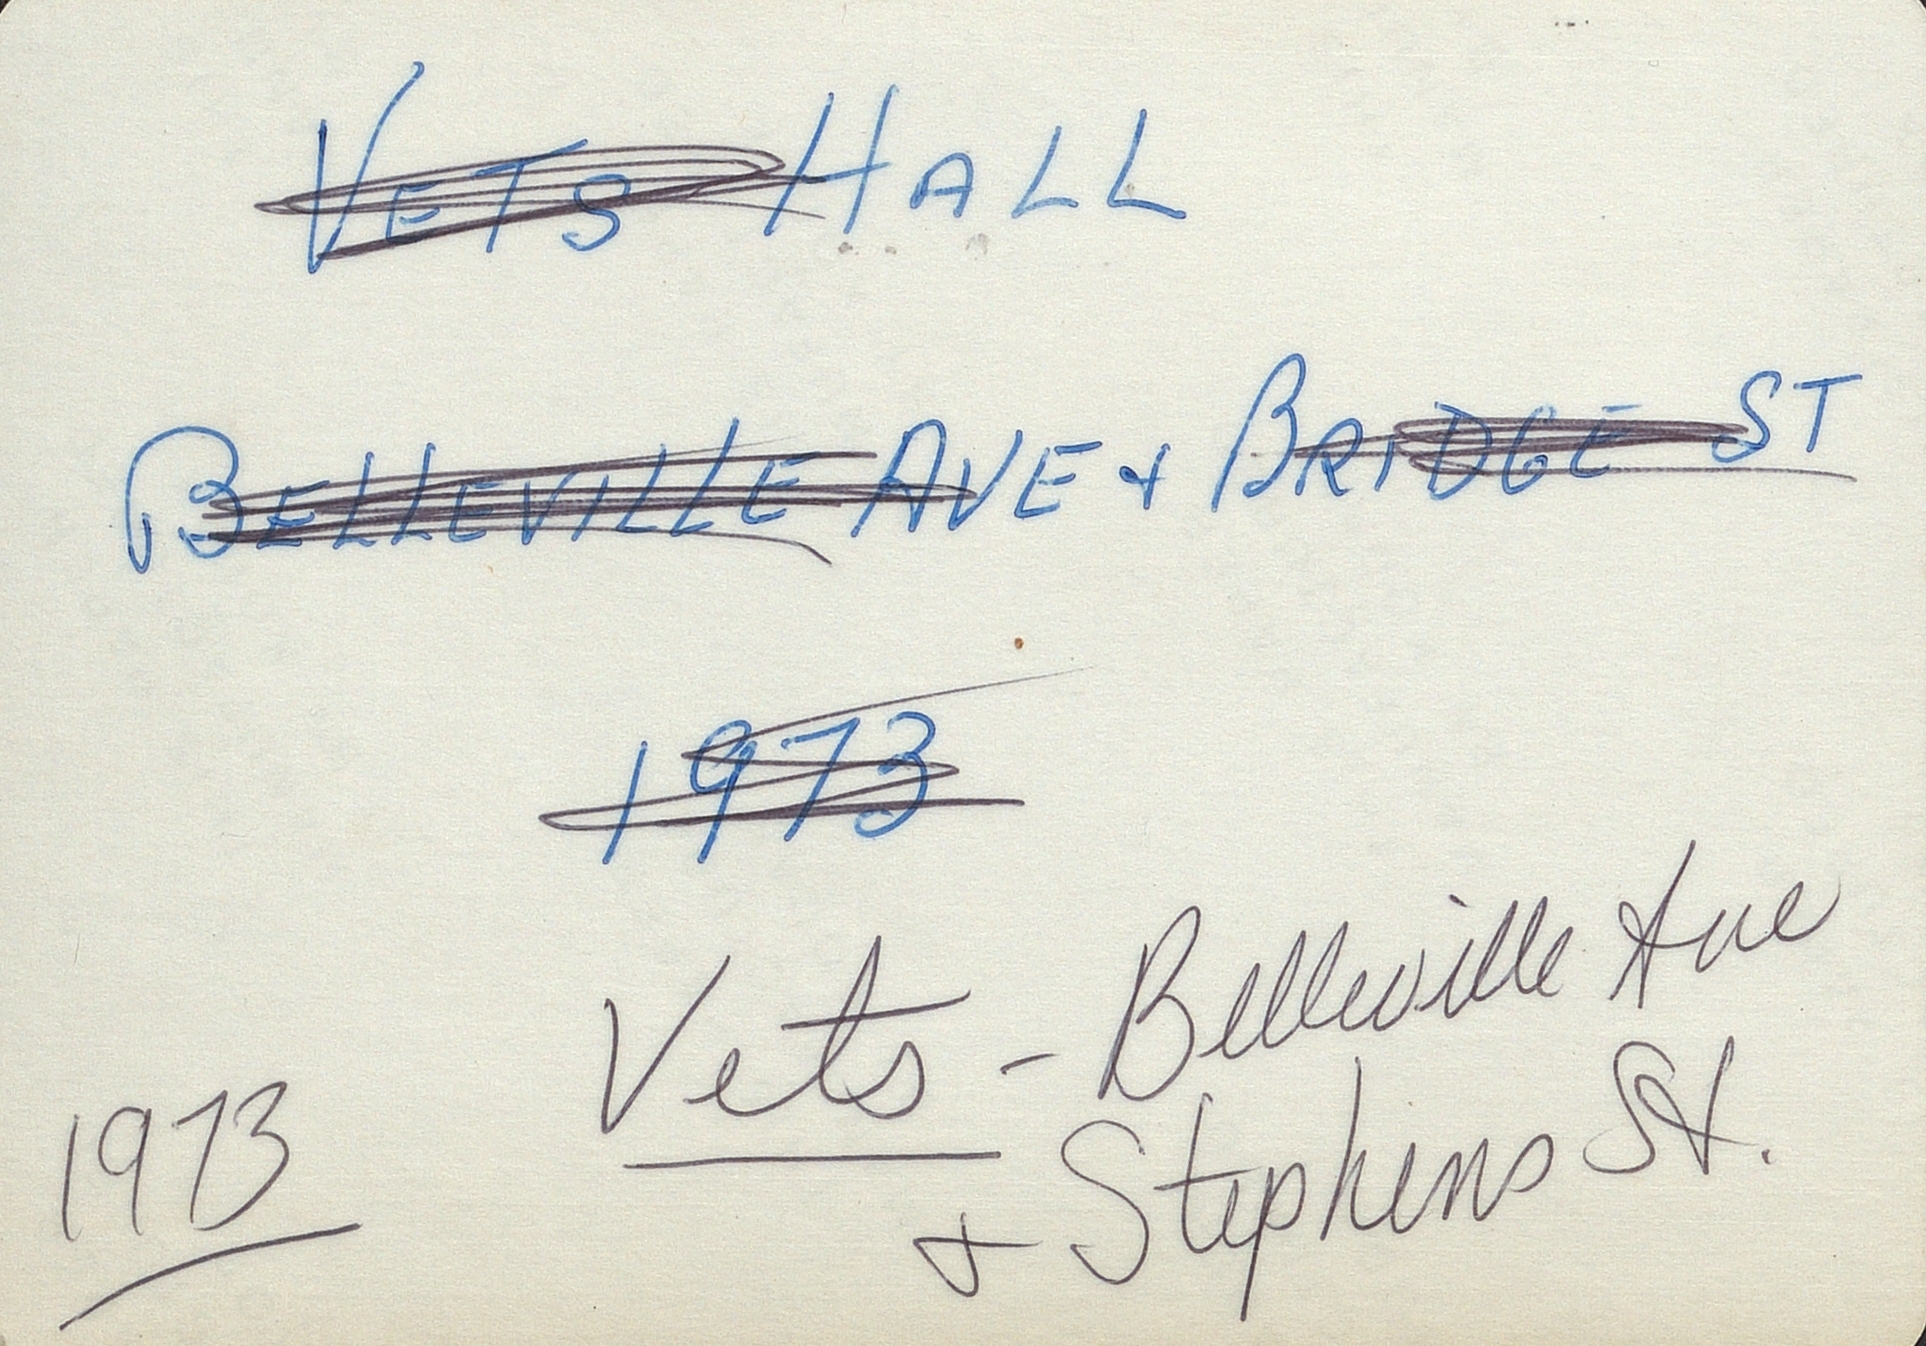 VETS HALL
BELLEVILLE AVE & BRIDGE ST
1973
Vets - Belleville Ave
& Stephens St.
1973